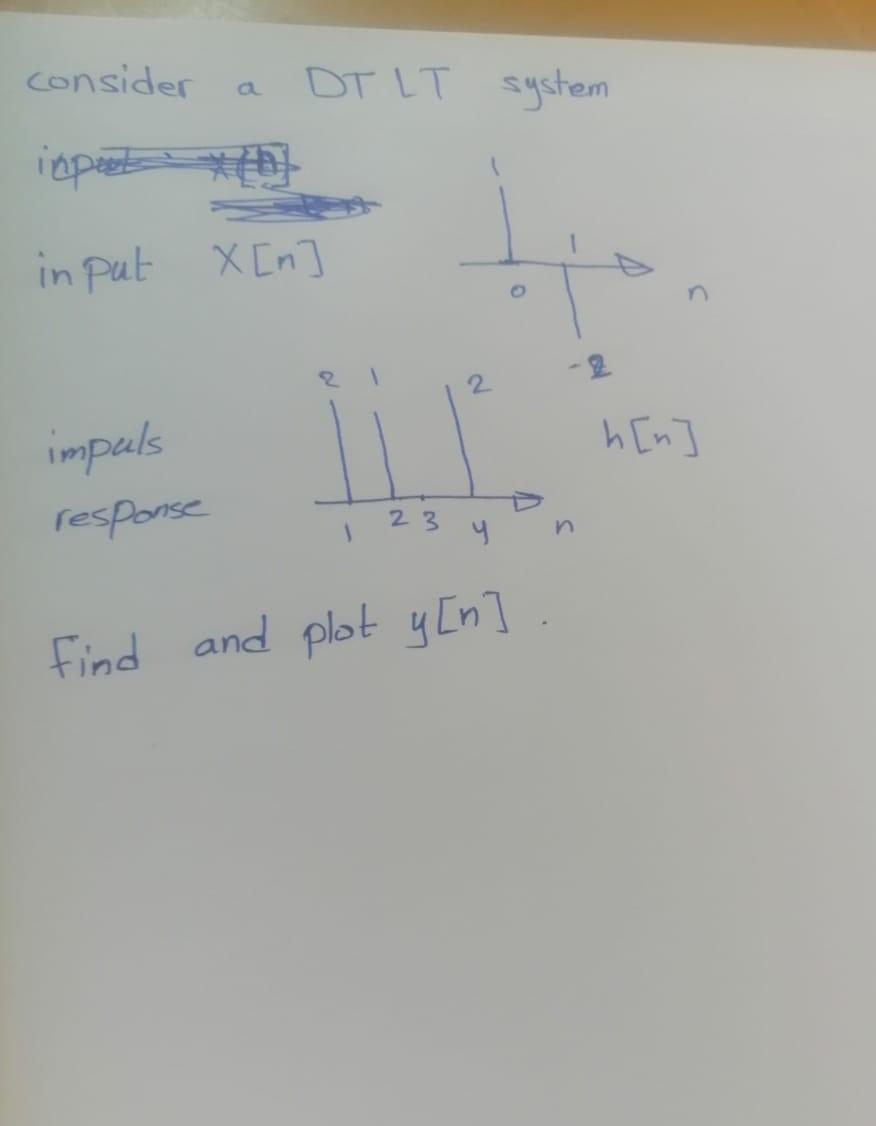 consider a DT LT system
input X[n]
1
1
0
n
-2
2 1 2
impuls
h[n]
response
1 2 3 4 n
Find and plot y[n].